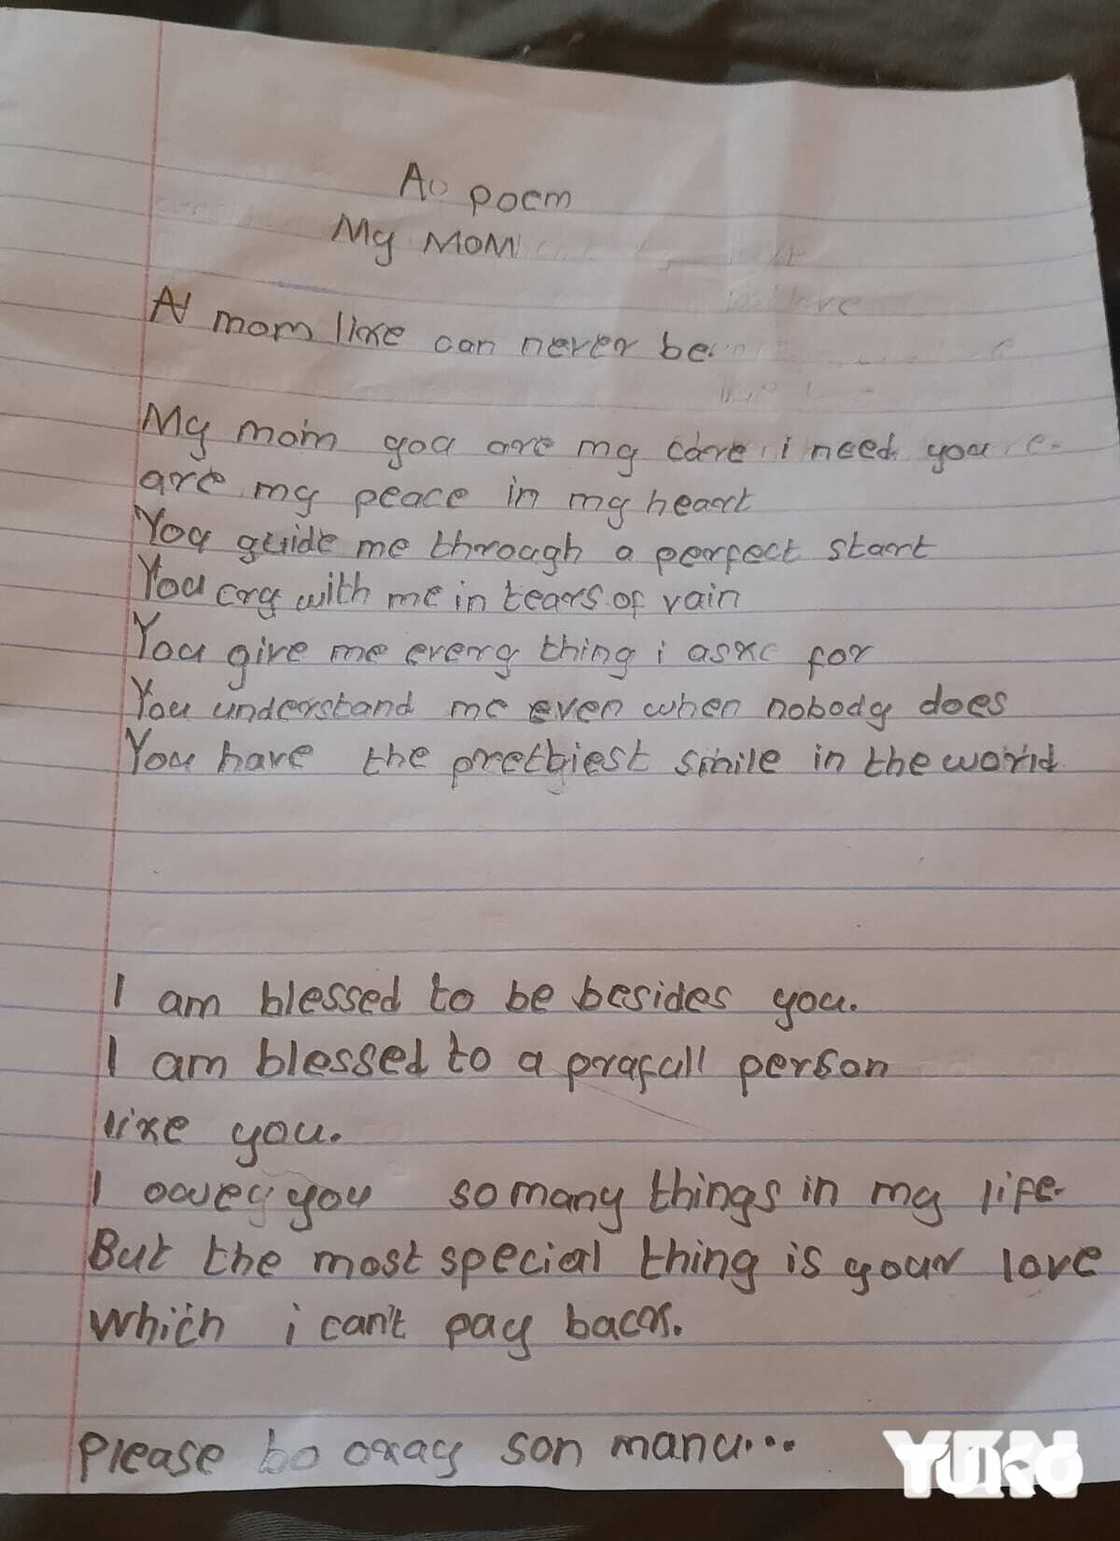 A poem
My MOM
A mom like can never be
My mom you are my care i need you
are my peace in my heart
You guide me through a perfect start
You cry with me in tears of vain
You give me every thing i ask for
You understand me even when nobody does
You have the prettiest smile in the world
I am blessed to be besides you.
I am blessed to a prafull person
like you.
I owe you so many things in my life
But the most special thing is your love
which i can't pay back.
Please be okay son manu...